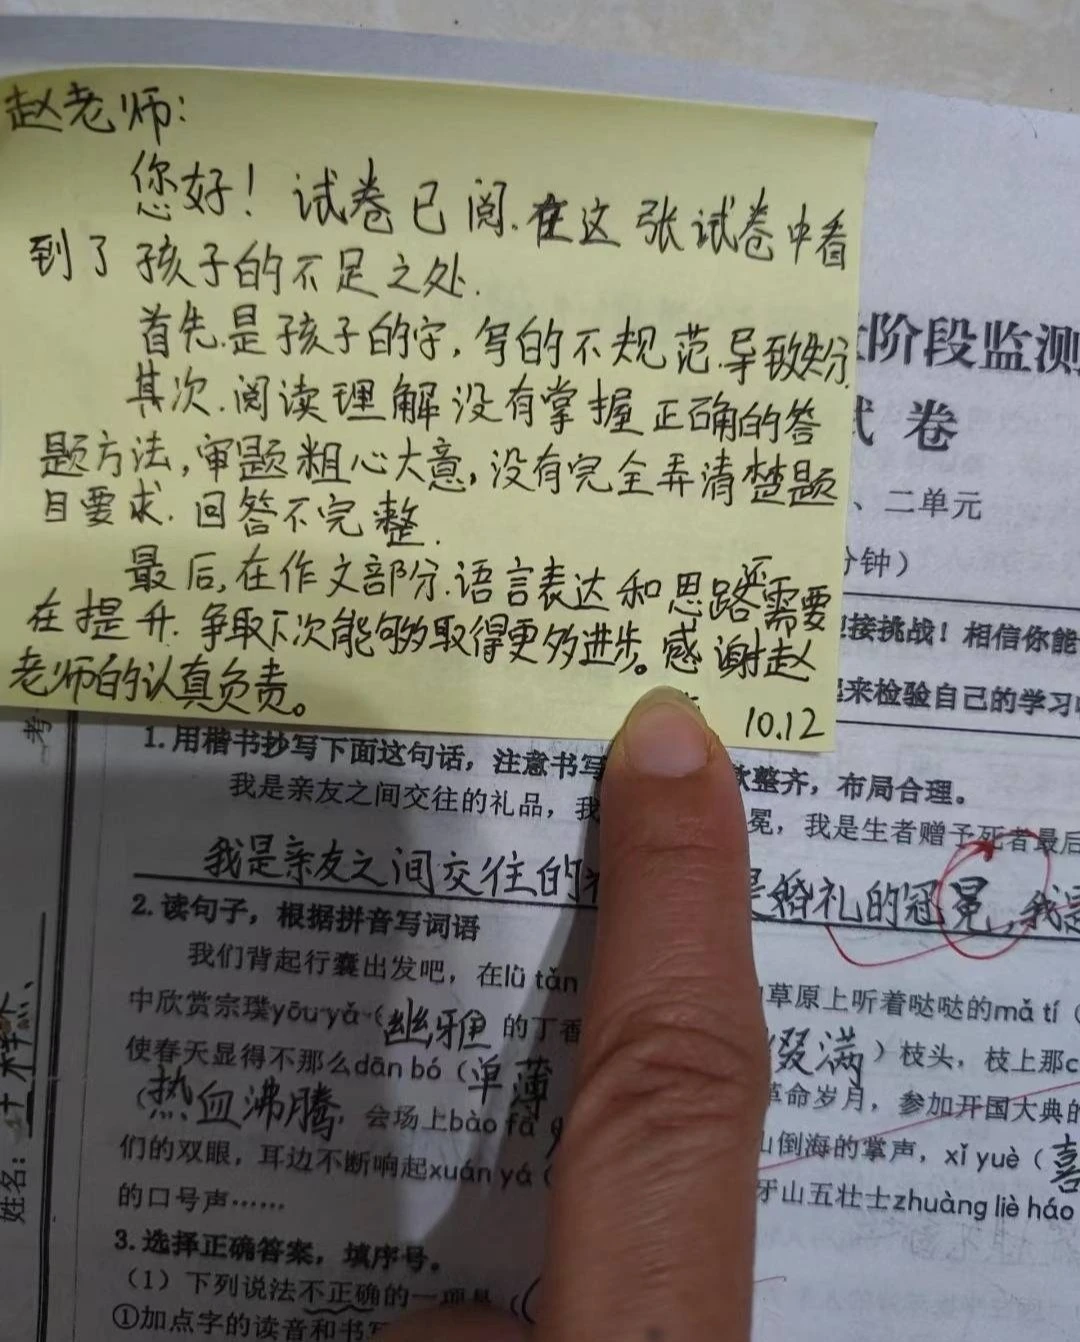 赵老师:
您好! 试卷已阅.在这张试卷中看
到了孩子的不足之处.
首先.是孩子的字,写的不规范.导致失分.
其次.阅读理解没有掌握正确的答
题方法,审题粗心大意,没有完全弄清楚题
目要求.回答不完整.
最后,在作文部分.语言表达和思路还需要
在提升.争取下次能够多取得更多进步。感谢赵
老师的认真负责。
10.12
阶段监测
试卷
、二单元
分钟)
迎接挑战!相信你能
起来检验自己的学习
1.用楷书抄写下面这句话,注意书写 整齐,布局合理。
我是亲友之间交往的礼品,我 冕,我是生者赠予死者最后
我是亲友之间交往的 是婚礼的冠冕,我是
2.读句子,根据拼音写词语
我们背起行囊出发吧,在lǜ tǎn 草原上听着哒哒的mǎ tí(
中欣赏宗璞yōu yǎ(幽雅 的丁香 缀满)枝头,枝上那
使春天显得不那么dān bó(单薄 革命岁月,参加开国大典的
(热血沸腾, 会场上bào fā 山倒海的掌声,xǐ yuè(喜
们的双眼,耳边不断响起xuán yá( 牙山五壮士zhuàng liè háo
的口号声……
3.选择正确答案,填序号。
(1)下列说法不正确的一项是(
①加点字的读音和书写
姓名:
考